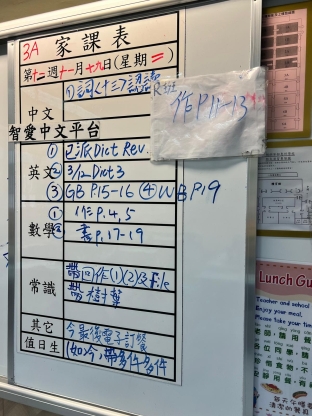 3A 家課表
第十二週十一月十九日(星期二)
中文
①詞(十三)認讀
R班
作P.11-13
智愛中文平台
英文
① 已派Dict Rev.
② 3/12-Dict3
③ GB P.15-16 ④ WB P.19
數學
① 作P.4,5
② 書P.17-19
常識
帶回作(1)(2)&File
帶樹葉
其它
今最後電子訂餐
值日生
Lunch Gu
Teacher and school
Enjoy your meal.
Please take your